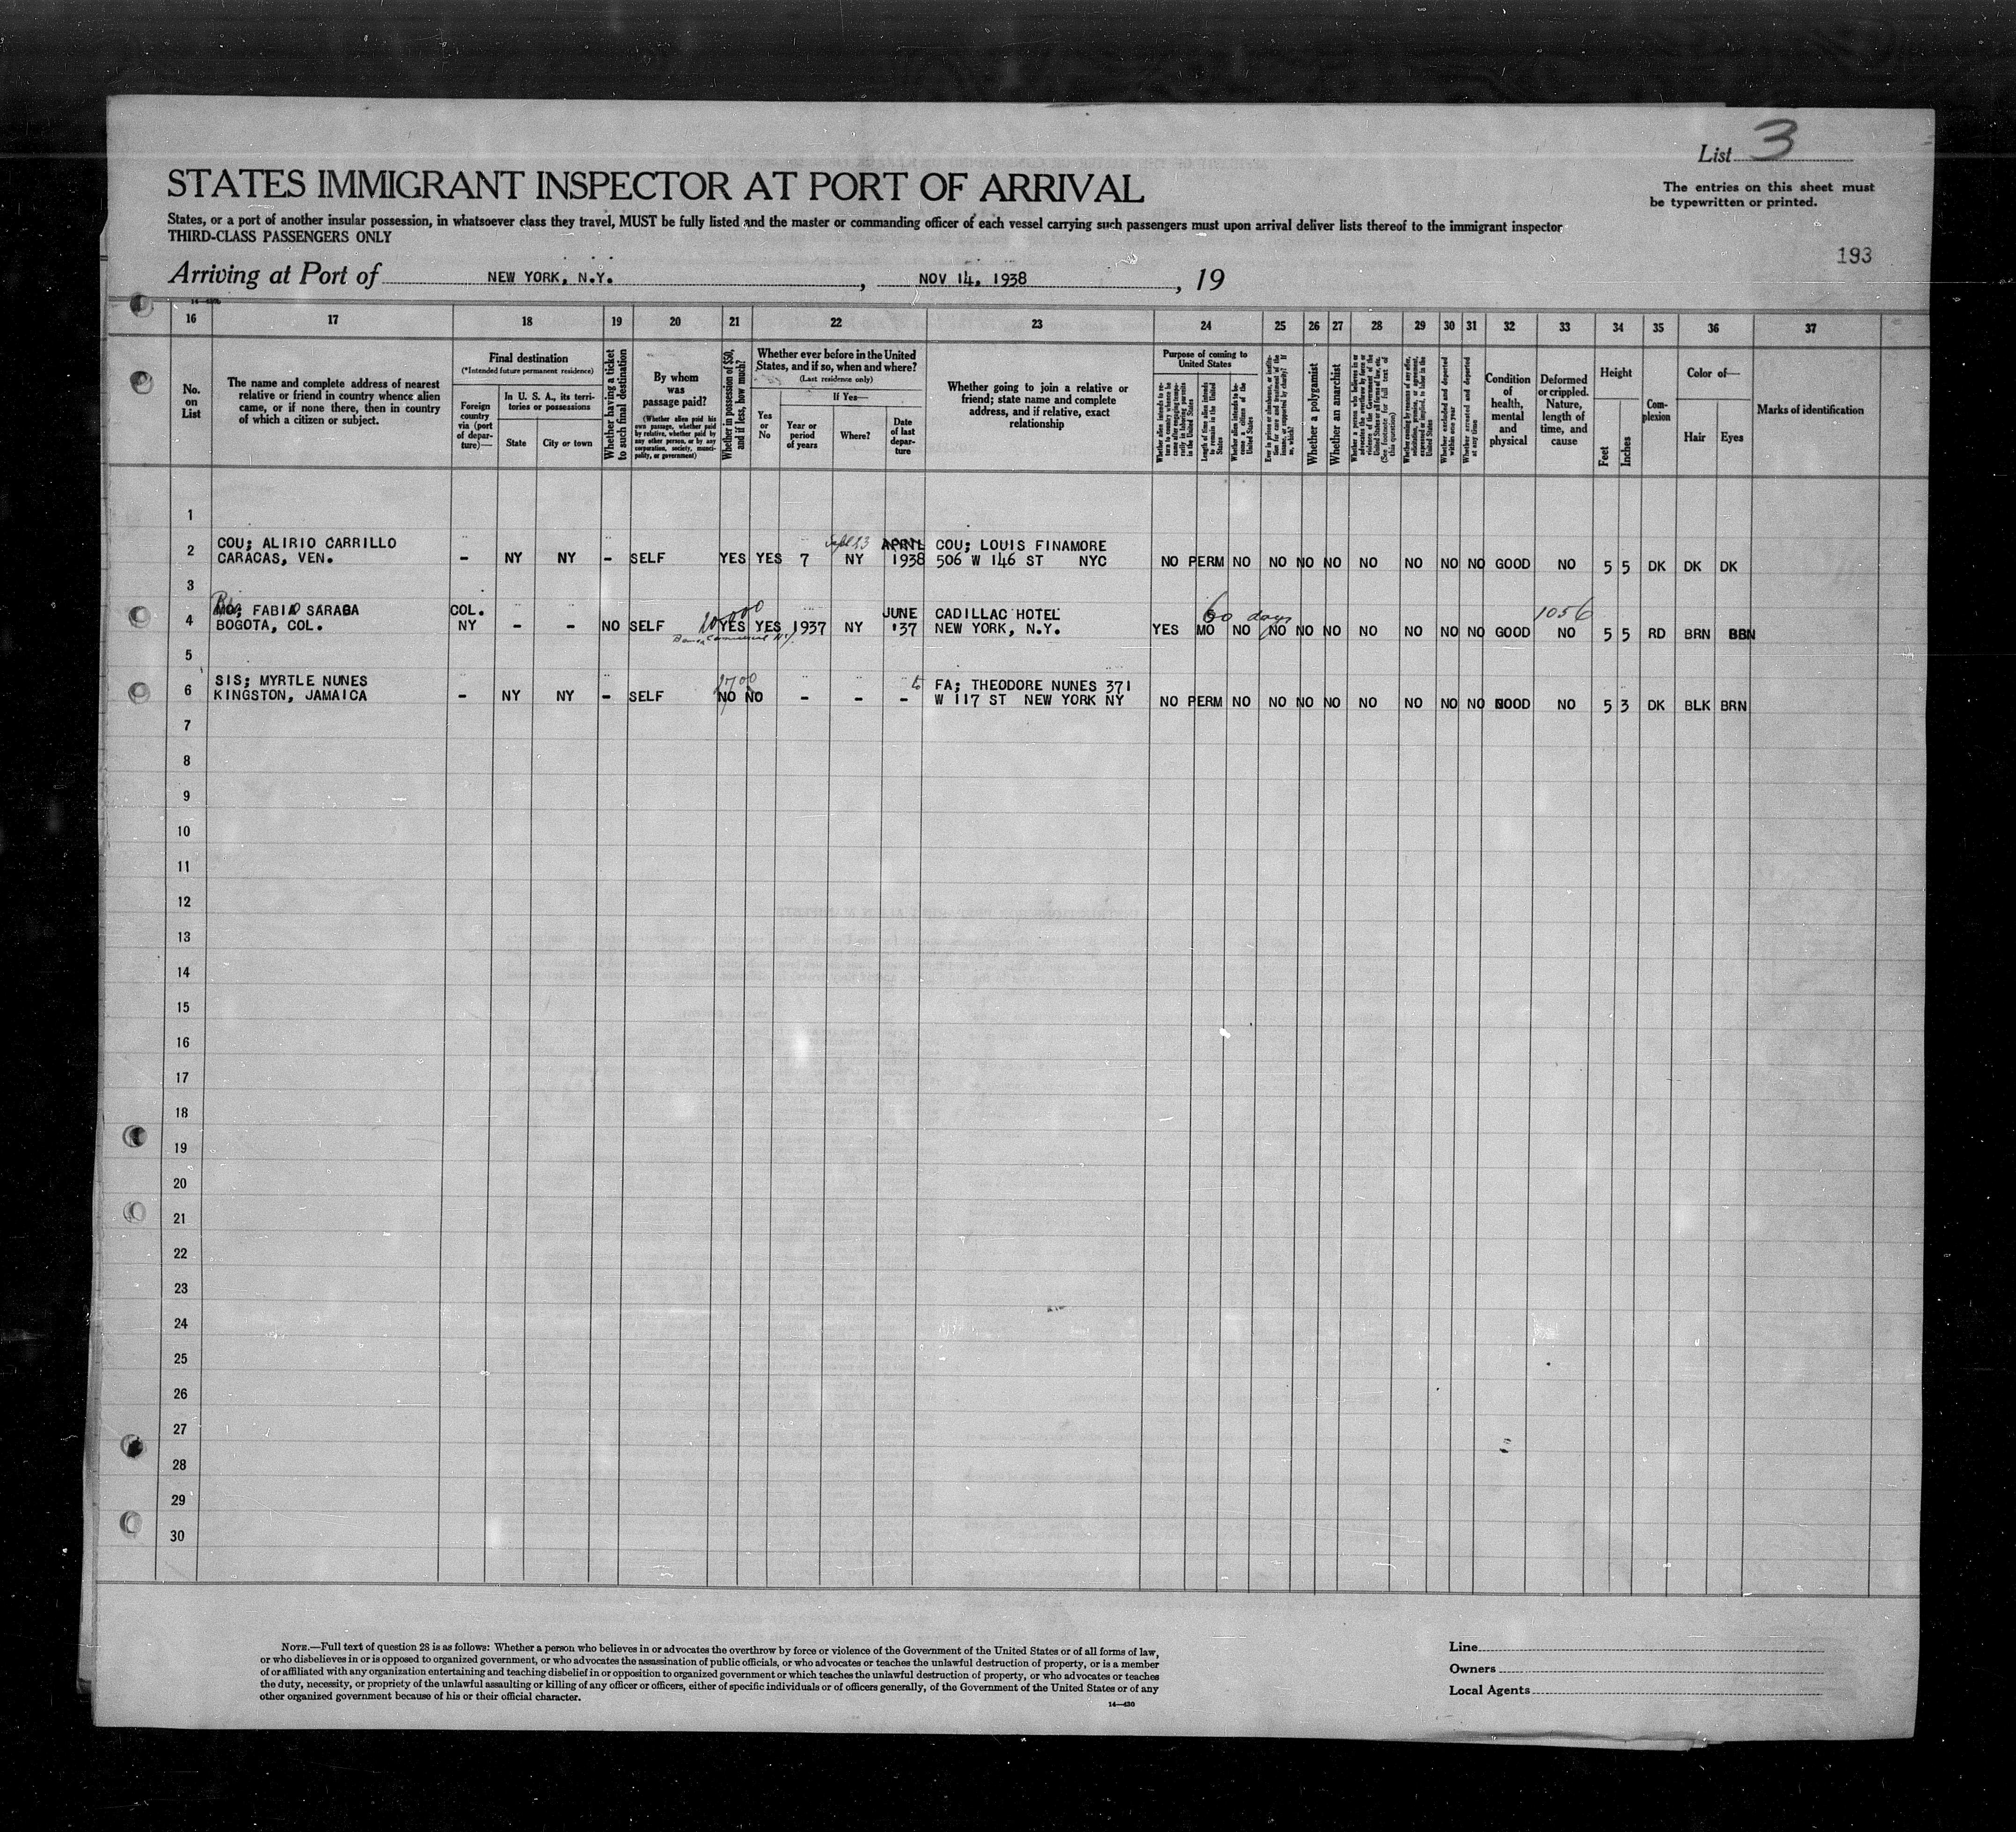 List 3
STATES IMMIGRANT INSPECTOR AT PORT OF ARRIVAL
The entries on this sheet must
be typewritten or printed.
States, or a port of another insular possession, in whatsoever class they travel, MUST be fully listed and the master or commanding officer of each vessel carrying such passengers must upon arrival deliver lists thereof to the immigrant inspector
THIRD-CLASS PASSENGERS ONLY
193
Arriving at Port of NEW YORK, N.Y. , NOV 14, 1938 , 19
16 17 18 19 20 21 22 23 24 25 26 27 28 29 30 31 32 33 34 35 36 37
No. on List
The name and complete address of nearest
relative or friend in country whence alien
came, or if none there, then in country
of which a citizen or subject.
Final destination
(*Intended future permanent residence)
Foreign country via (port of departure)—
In U. S. A., its territories or possessions
State
City or town
Whether having a ticket to such final destination
By whom was passage paid?
(Whether alien paid his own passage, whether paid by relative, whether paid by any other person, or by any corporation, society, municipality, or government)
Whether in possession of $50, and if less, how much?
Whether ever before in the United
States, and if so, when and where?
(Last residence only)
Yes or No
If Yes—
Year or period of years
Where?
Date of last departure
Whether going to join a relative or
friend; state name and complete
address, and if relative, exact
relationship
Purpose of coming to United States
Length of time alien intends to remain in the United States
Whether alien intends to become a citizen of the United States
Whether a polygamist
Whether an anarchist
Whether excluded and deported within one year
Whether arrested and deported at any time
Condition of health, mental and physical
Deformed or crippled. Nature, length of time, and cause
Height
Feet
Inches
Complexion
Color of—
Hair
Eyes
Marks of identification
1
COU; ALIRIO CARRILLO APRIL COU; LOUIS FINAMORE
2 CARACAS, VEN. – NY NY – SELF YES YES 7 NY 1938 506 W 146 ST NYC NO PERM NO NO NO NO NO NO NO NO GOOD NO 5 5 DK DK DK
3
FABIO SARABA COL. 60 days 1056
JUNE CADILLAC HOTEL
4 BOGOTA, COL. NY – – NO SELF YES YES 1937 NY '37 NEW YORK, N.Y. YES MO NO NO NO NO NO NO NO NO GOOD NO 5 5 RD BRN BRN
5
SIS; MYRTLE NUNES FA; THEODORE NUNES 371
6 KINGSTON, JAMAICA – NY NY – SELF NO NO – – – W 117 ST NEW YORK NY NO PERM NO NO NO NO NO NO NO NO GOOD NO 5 3 DK BLK BRN
7
8
9
10
11
12
13
14
15
16
17
18
19
20
21
22
23
24
25
26
27
28
29
30
NOTE.—Full text of question 28 is as follows: Whether a person who believes in or advocates the overthrow by force or violence of the Government of the United States or of all forms of law,
or who disbelieves in or is opposed to organized government, or who advocates the assassination of public officials, or who advocates or teaches the unlawful destruction of property, or is a member
of or affiliated with any organization entertaining and teaching disbelief in or opposition to organized government or which teaches the unlawful destruction of property, or who advocates or teaches
the duty, necessity, or propriety of the unlawful assaulting or killing of any officer or officers, either of specific individuals or of officers generally, of the Government of the United States or of any
other organized government because of his or their official character.
14—430
Line
Owners
Local Agents